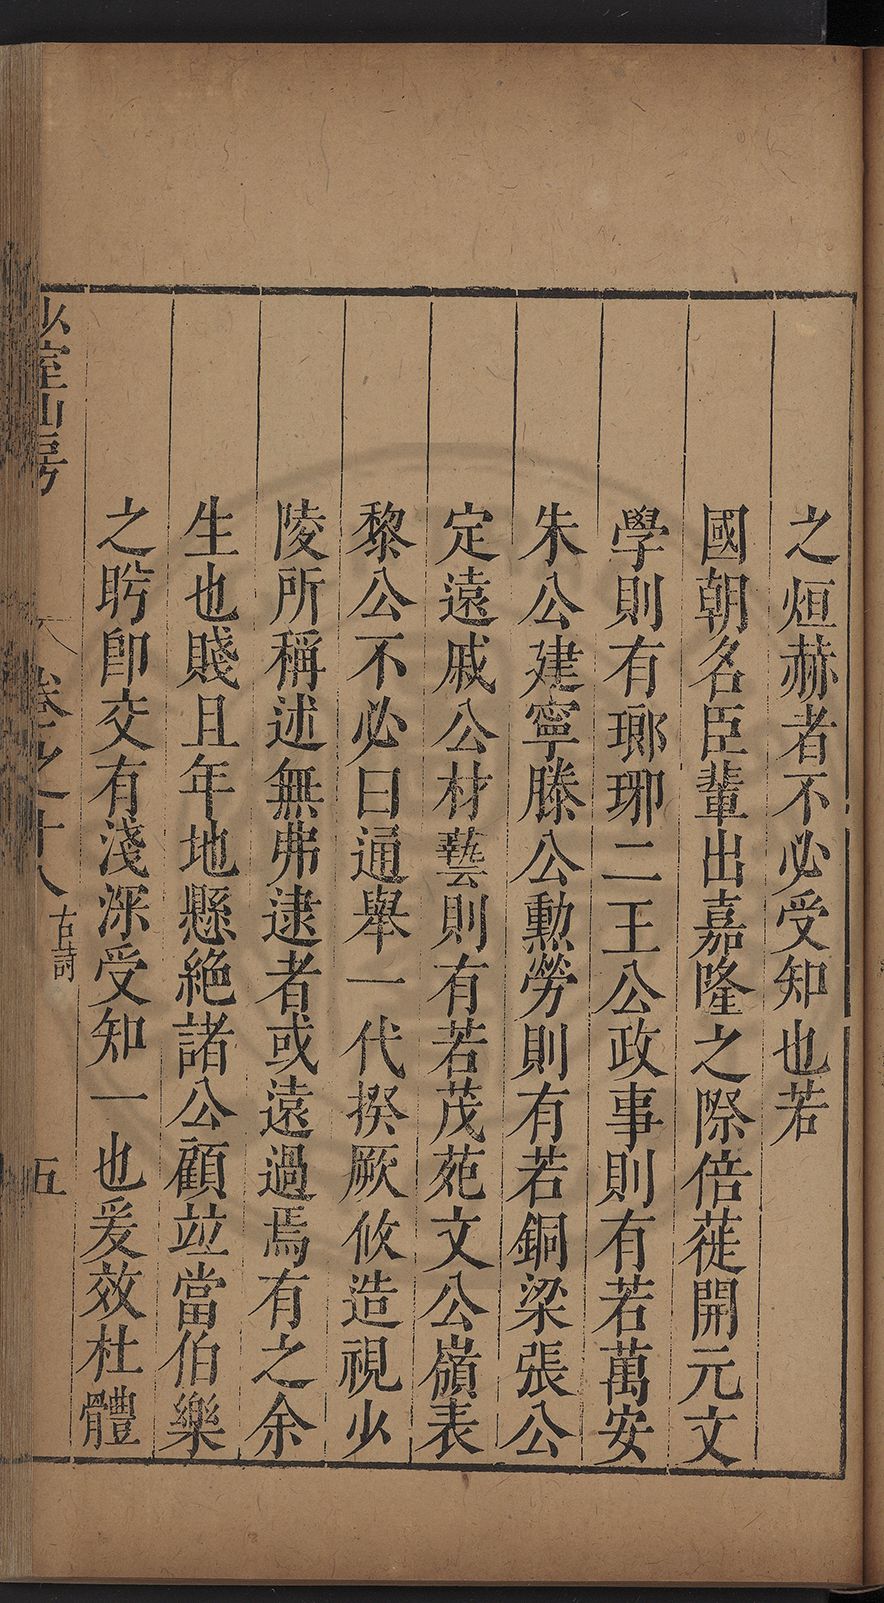 之烜赫者不必受知也若
國朝名臣輩出嘉隆之際倍蓰開元文
學則有瑯琊二王公政事則有若萬安
朱公建寧滕公勳勞則有若銅梁張公
定遠戚公材藝則有若茂苑文公嶺表
黎公不必曰通舉一代揆厥攸造視少
陵所稱述無弗逮者或遠過焉有之余
生也賤且年地懸絶諸公顧竝當伯樂
之盻卽交有淺深受知一也爰效杜體
少室山房 卷之十八 古詩 五